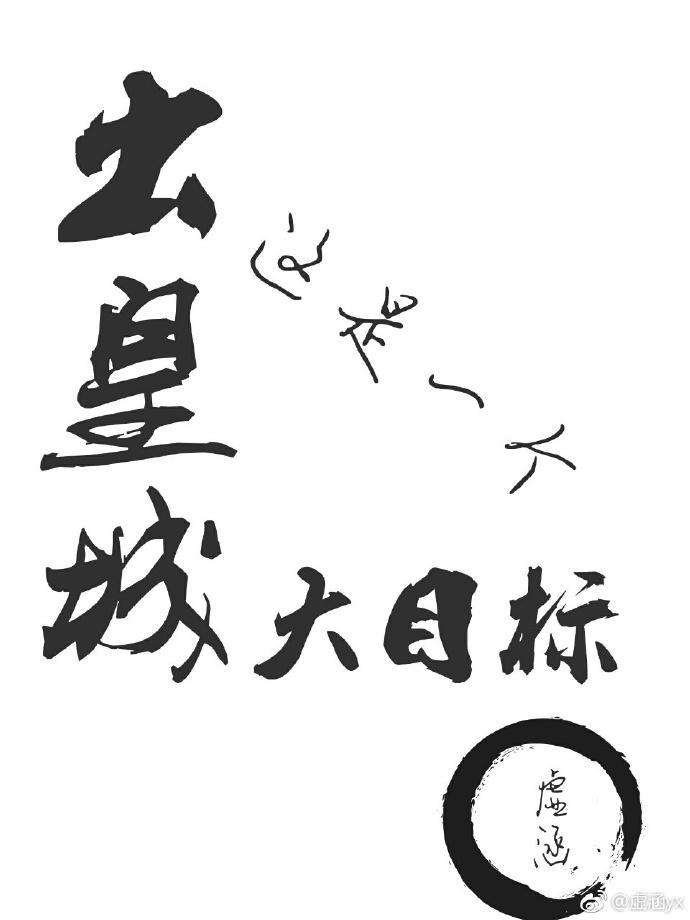 出皇城
是一个
大目标
虚涵
@虚涵yx